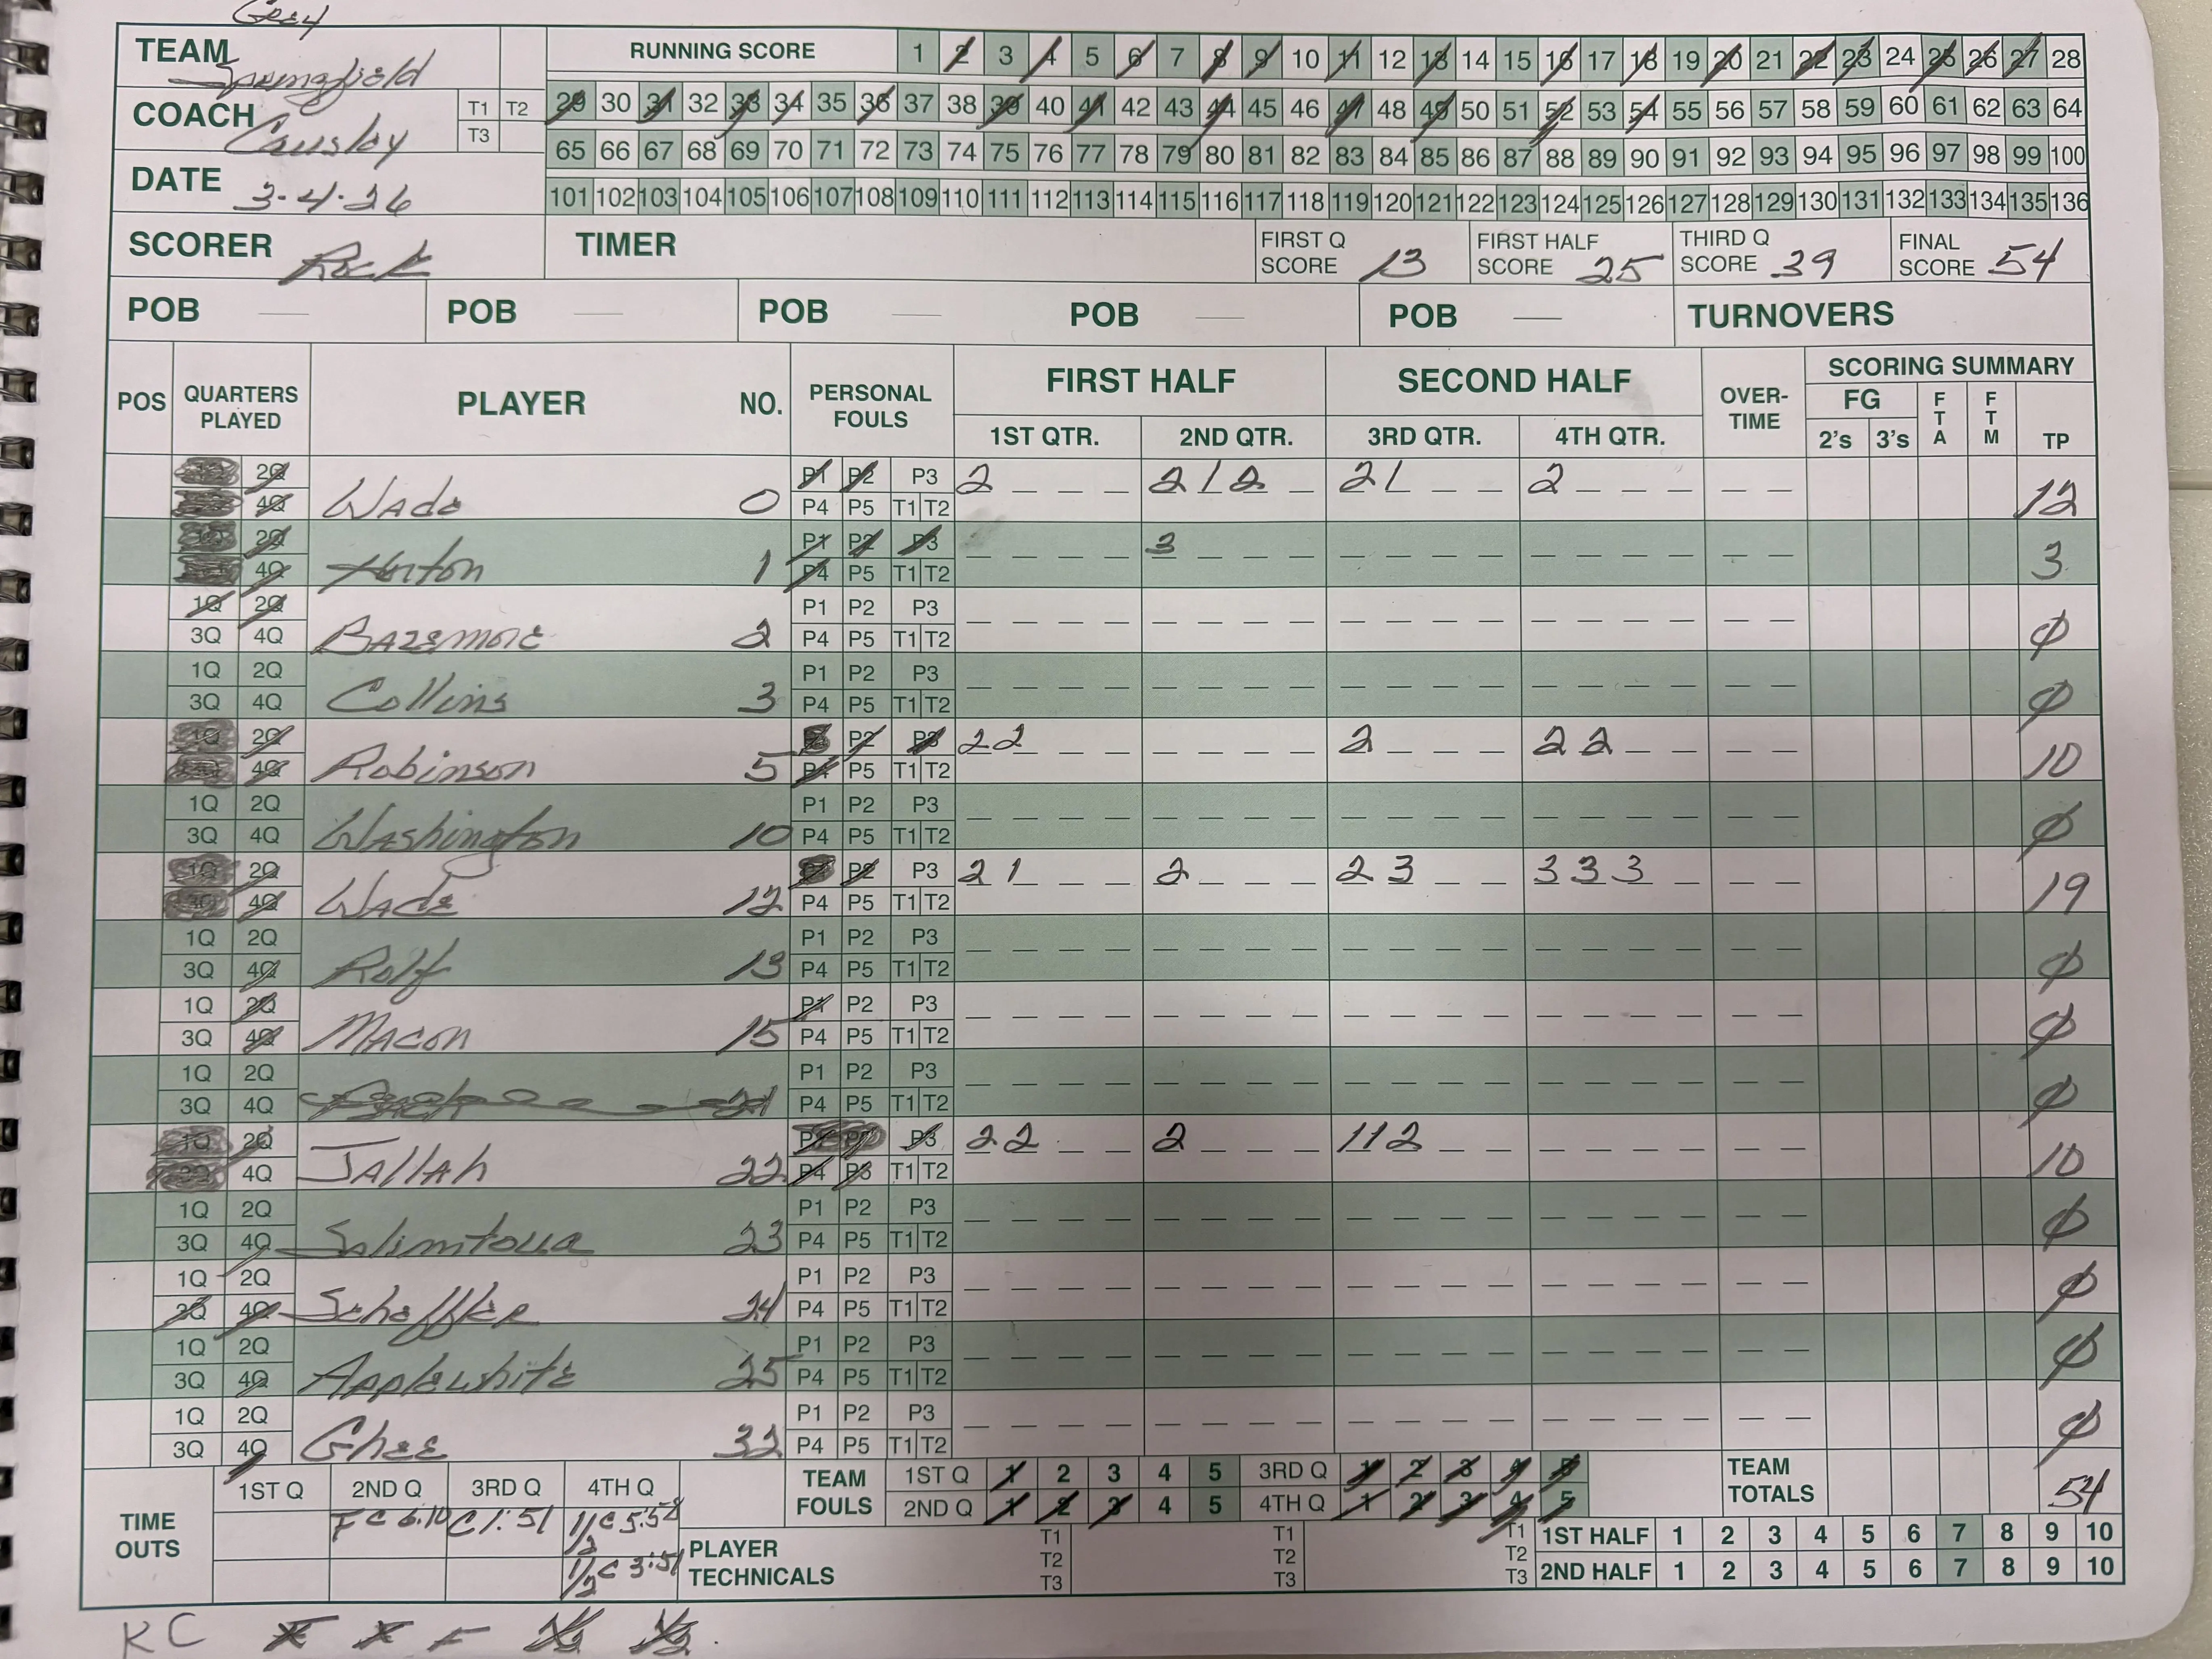 Grey
TEAM Springfield
RUNNING SCORE 1 2 3 4 5 6 7 8 9 10 11 12 13 14 15 16 17 18 19 20 21 22 23 24 25 26 27 28
COACH Causley T1 T2 T3
29 30 31 32 33 34 35 36 37 38 39 40 41 42 43 44 45 46 47 48 49 50 51 52 53 54 55 56 57 58 59 60 61 62 63 64
65 66 67 68 69 70 71 72 73 74 75 76 77 78 79 80 81 82 83 84 85 86 87 88 89 90 91 92 93 94 95 96 97 98 99 100
DATE 3-4-26
101 102 103 104 105 106 107 108 109 110 111 112 113 114 115 116 117 118 119 120 121 122 123 124 125 126 127 128 129 130 131 132 133 134 135 136
SCORER Rock TIMER FIRST Q SCORE 13 FIRST HALF SCORE 25 THIRD Q SCORE 39 FINAL SCORE 54
POB — POB — POB — POB — POB — TURNOVERS
POS QUARTERS PLAYED PLAYER NO. PERSONAL FOULS FIRST HALF SECOND HALF OVER-TIME SCORING SUMMARY
1ST QTR. 2ND QTR. 3RD QTR. 4TH QTR. FG 2's 3's FTA FTM TP
2Q P1 P2 P3 2 2 1 2 2 1 2
4Q Wade 0 P4 P5 T1 T2 12
2Q P1 P2 P3 3
4Q 1 P4 P5 T1 T2 3
1Q 2Q P1 P2 P3
3Q 4Q Bazemore 2 P4 P5 T1 T2 ϕ
1Q 2Q P1 P2 P3
3Q 4Q Collins 3 P4 P5 T1 T2 ϕ
1Q 2Q P2 P3 2 2 2 2 2
4Q Robinson 5 P4 P5 T1 T2 10
1Q 2Q P1 P2 P3
3Q 4Q Washington 10 P4 P5 T1 T2 ϕ
1Q 2Q P2 P3 2 1 2 2 3 3 3 3
3Q 4Q Wade 12 P4 P5 T1 T2 19
1Q 2Q P1 P2 P3
3Q 4Q Rolf 13 P4 P5 T1 T2 ϕ
1Q 2Q P1 P2 P3
3Q 4Q Macon 15 P4 P5 T1 T2 ϕ
1Q 2Q P1 P2 P3
3Q 4Q 21 P4 P5 T1 T2 ϕ
1Q 2Q P1 P2 P3 2 2 2 1 1 2
4Q Jallah 22 P4 P5 T1 T2 10
1Q 2Q P1 P2 P3
3Q 4Q 23 P4 P5 T1 T2 ϕ
1Q 2Q P1 P2 P3
3Q 4Q Scheffler 24 P4 P5 T1 T2 ϕ
1Q 2Q P1 P2 P3
3Q 4Q Applewhite 25 P4 P5 T1 T2 ϕ
1Q 2Q P1 P2 P3
3Q 4Q Ghee 32 P4 P5 T1 T2 ϕ
TIME OUTS 1ST Q 2ND Q 3RD Q 4TH Q
F C 6:10 C 1:51 1/2 C 5:58
1/2 C 3:51
TEAM FOULS 1ST Q 1 2 3 4 5 3RD Q 1 2 3 4 5 TEAM TOTALS 54
2ND Q 1 2 3 4 5 4TH Q 1 2 3 4 5
PLAYER TECHNICALS T1 T2 T3 T1 T2 T3 T1 T2 T3
1ST HALF 1 2 3 4 5 6 7 8 9 10
2ND HALF 1 2 3 4 5 6 7 8 9 10
KC F F F 1/2 1/2